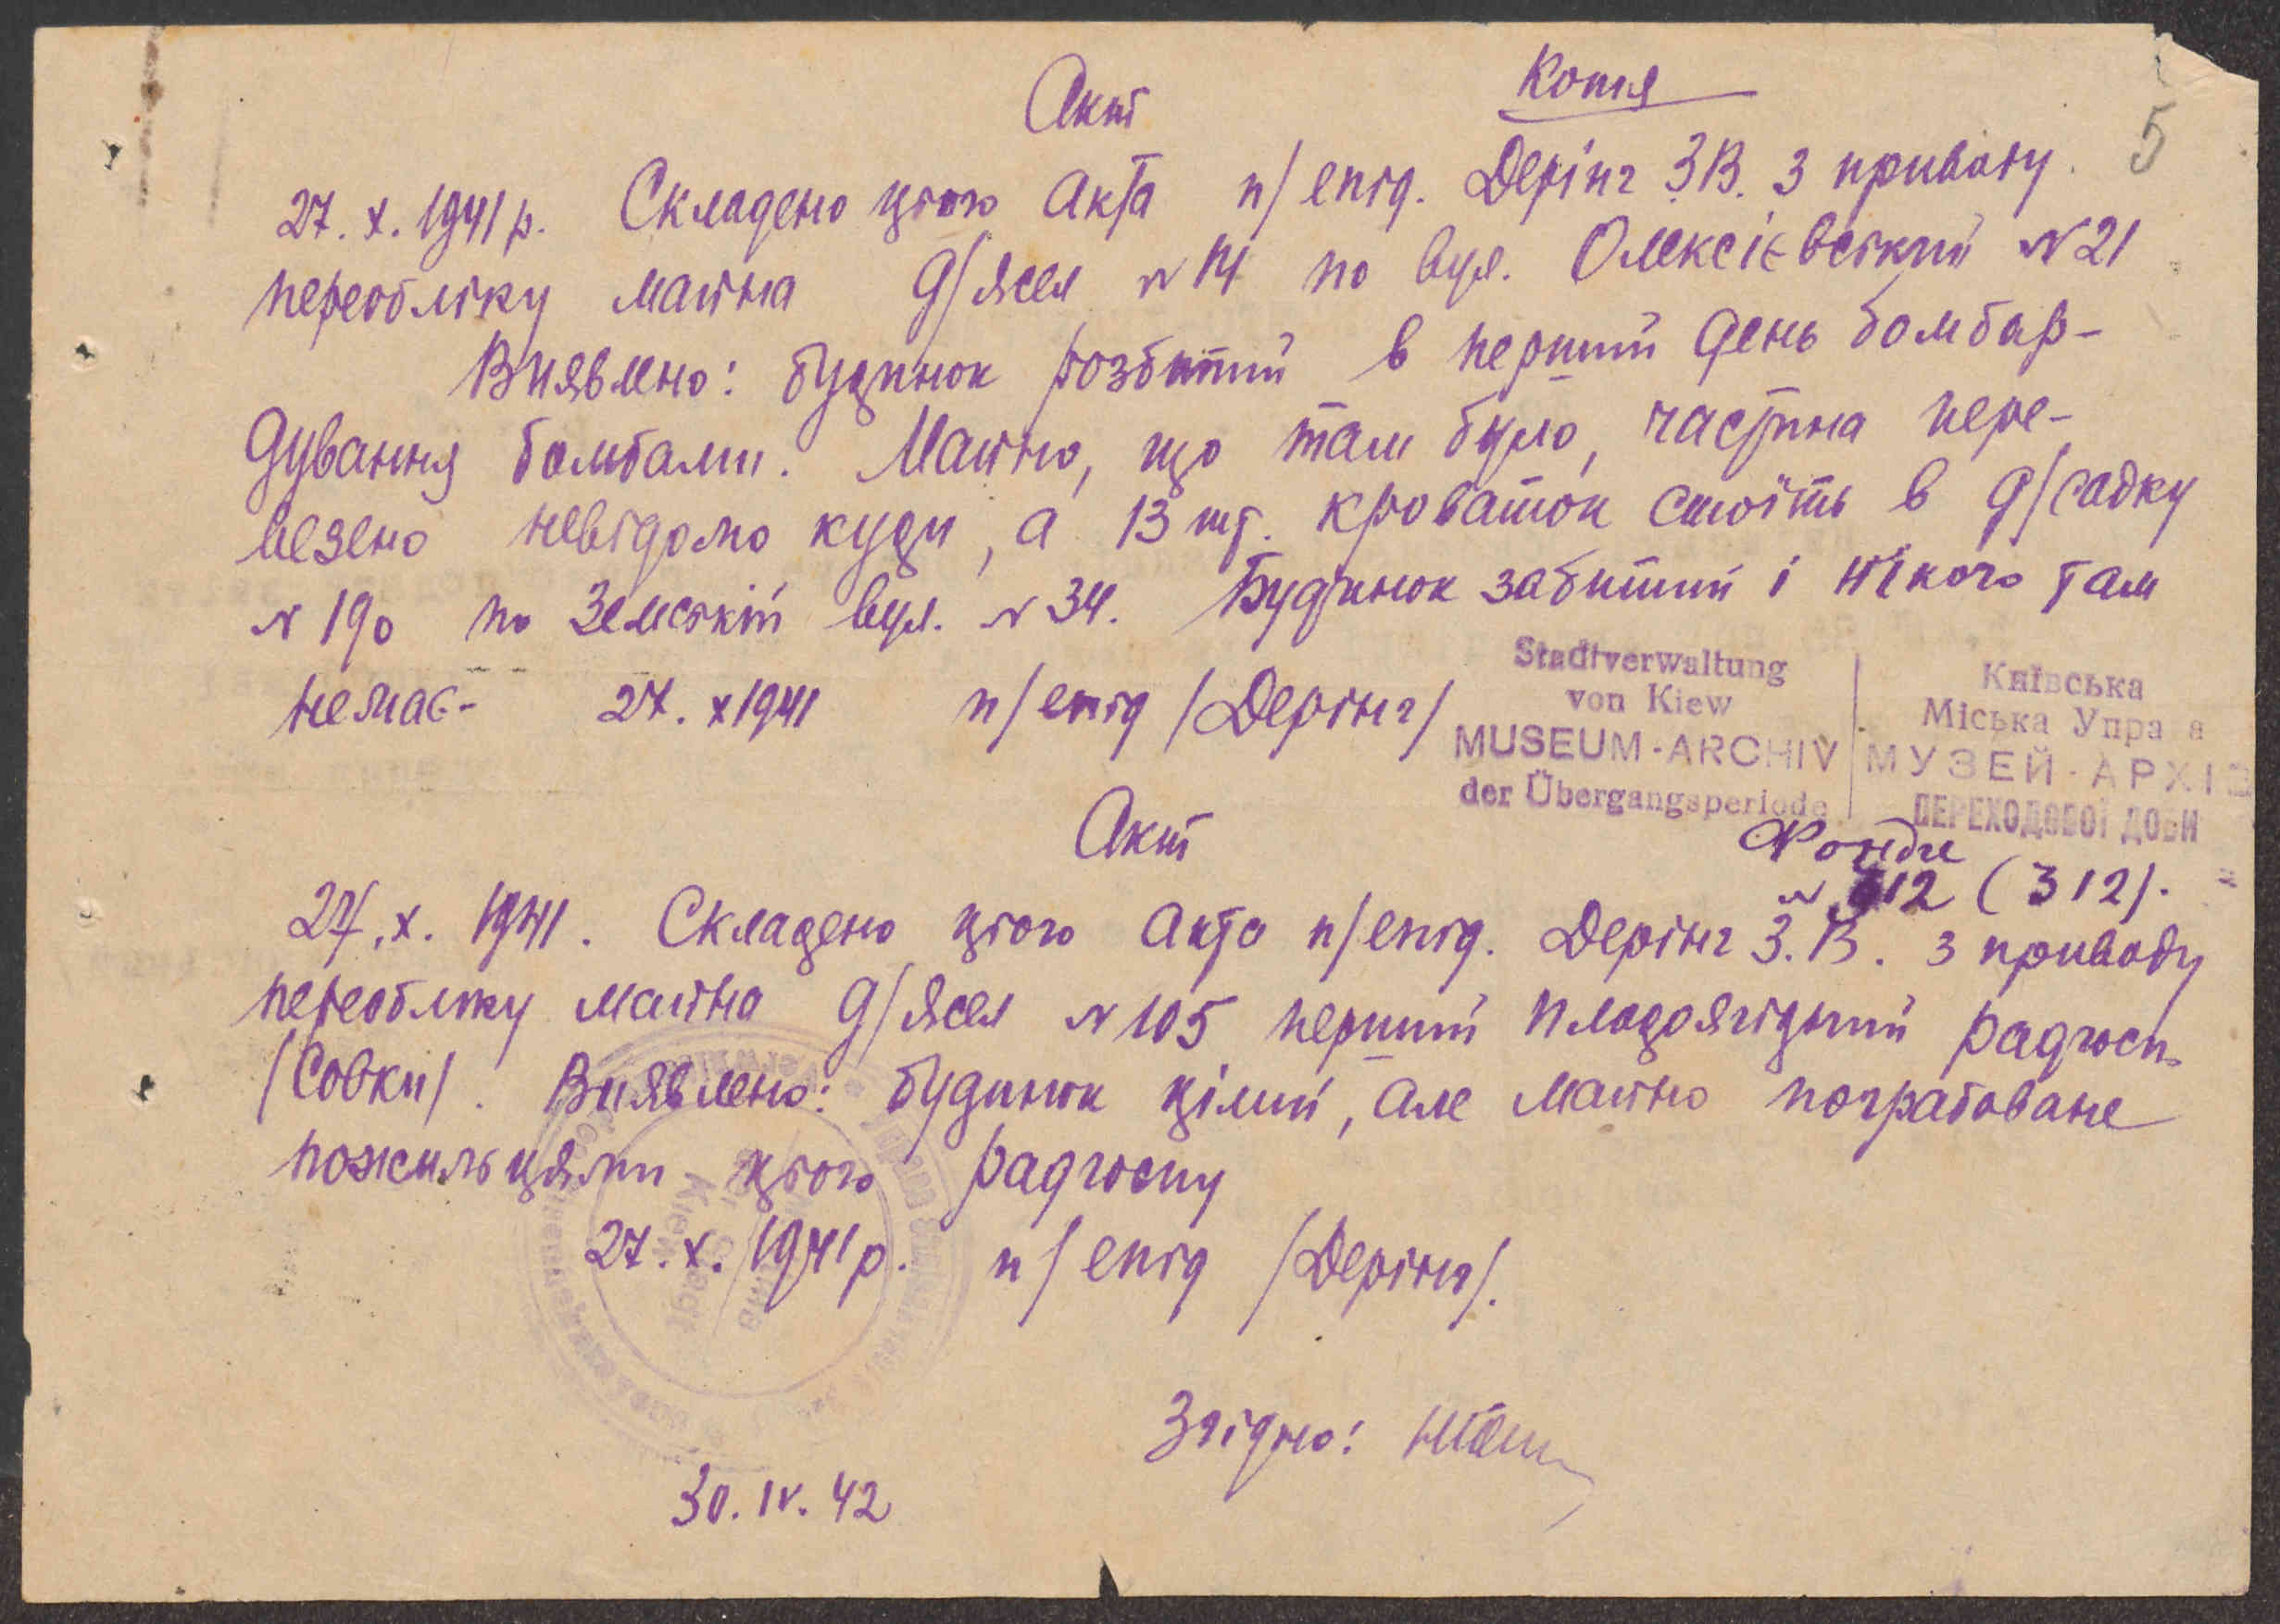 Копія
Акт
5
27. X. 1941 р. Складено цього Акта п/епід. Дерінг З.В. з приводу
переобліку майна д/ясел № 14 по вул. Олексієвській № 21
Виявлено: будинок розбитий в перший день бомбар-
дування бомбами. Майно, що там було, частина пере-
везено невідомо куди, а 13 шт. кроваток стоїть в д/садку
№ 190 по Земській вул. № 34. Будинок забитий і нікого там
немає- 27. X 1941 п/епід /Дерінг/
Stadtverwaltung
von Kiew
MUSEUM-ARCHIV
der Übergangsperiode
Київська
Міська Упра а
МУЗЕЙ-АРХІВ
ПЕРЕХОДОВОЇ ДОБИ
Фонди
№ 612 (312).
Акт
27. X. 1941. Складено цього Акта п/епід. Дерінг З.В. з приводу
переобліку майна д/ясел № 105 перший плодоягідний радгосп-
/Совки/. Виявлено: будинок цілий, але майно пограбоване
пожильцями цього радгоспу
27. X. 1941 р. п/епід /Дерінг/.
Згідно:
30. IV. 42